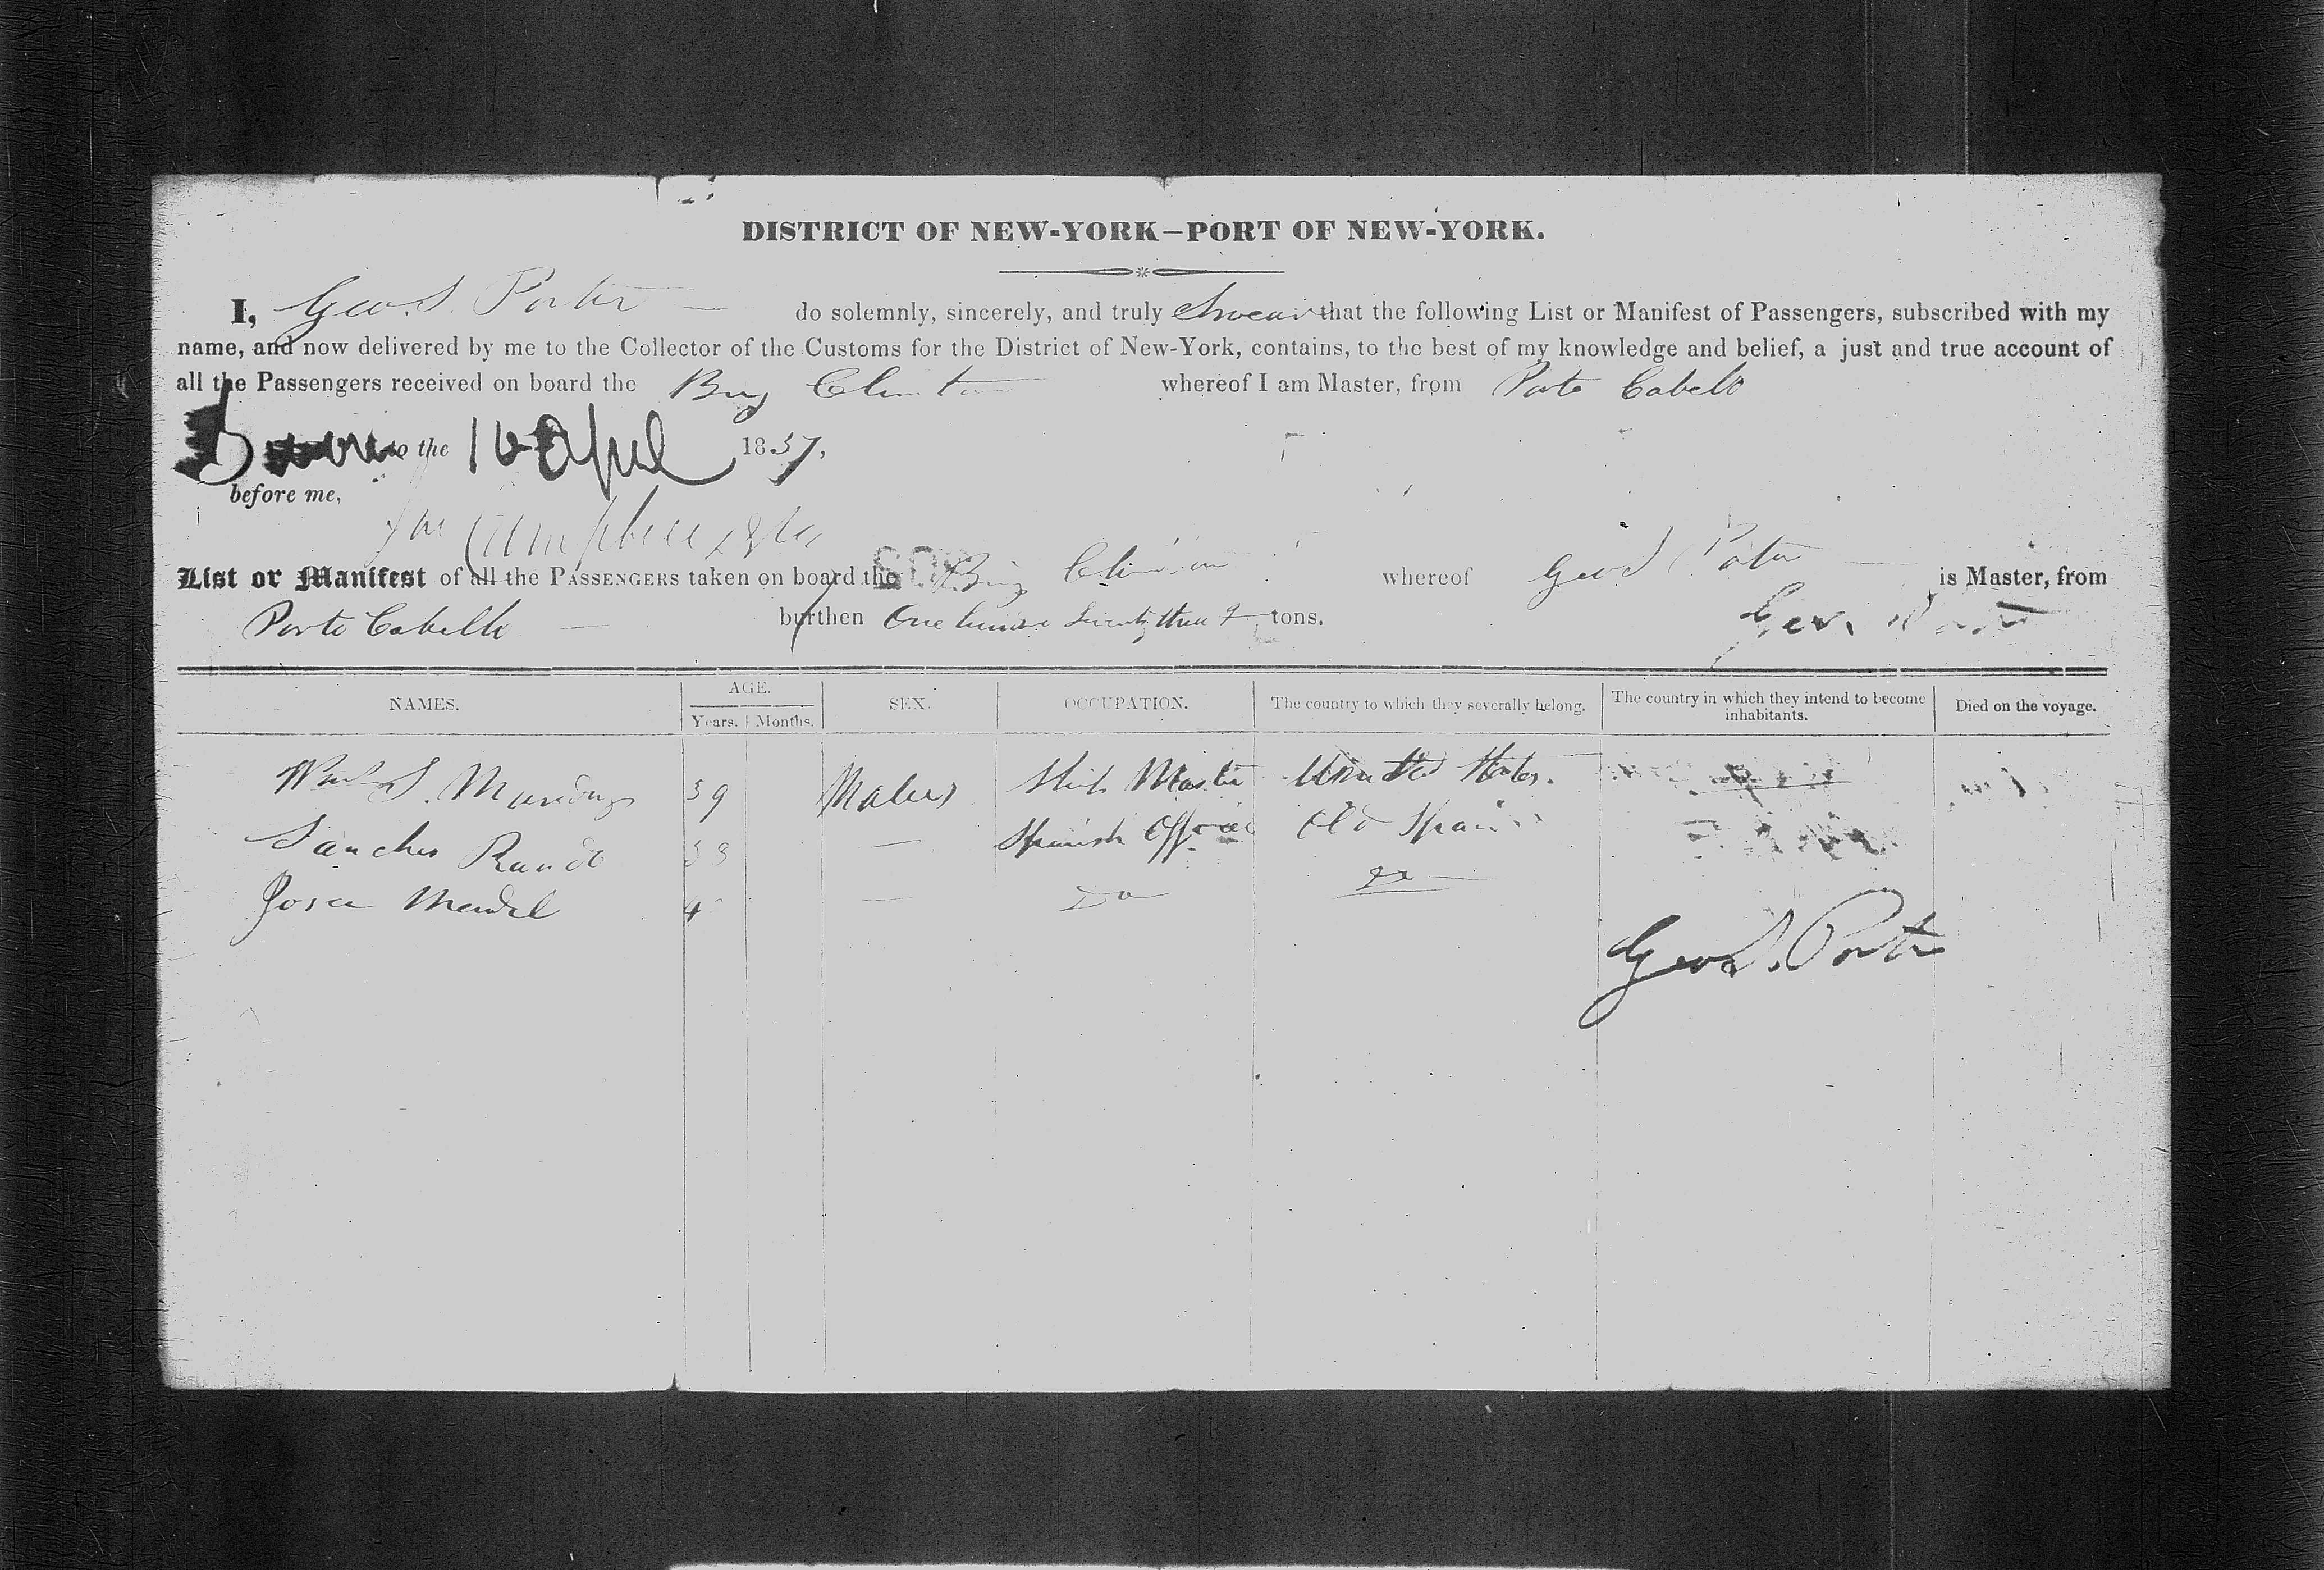 DISTRICT OF NEW-YORK—PORT OF NEW-YORK.
I, Geo. S. Porter do solemnly, sincerely, and truly Swear that the following List or Manifest of Passengers, subscribed with my
name, and now delivered by me to the Collector of the Customs for the District of New-York, contains, to the best of my knowledge and belief, a just and true account of
all the Passengers received on board the Brig Clinton whereof I am Master, from Porto Cabello
to the 1837,
before me,
List or Manifest of all the PASSENGERS taken on board the Brig Clinton whereof Geo S Porter is Master, from
Porto Cabello burthen One hundred Seventy three tons.
Geo. S. Porter
NAMES. AGE. SEX. OCCUPATION. The country to which they severally belong. The country in which they intend to become inhabitants. Died on the voyage.
Years. Months.
S. 39 Males Ship Master United States.
Sanches 33 — Spanish Officer Old Spain
Mendel — Do Do
Geo. S. Porter